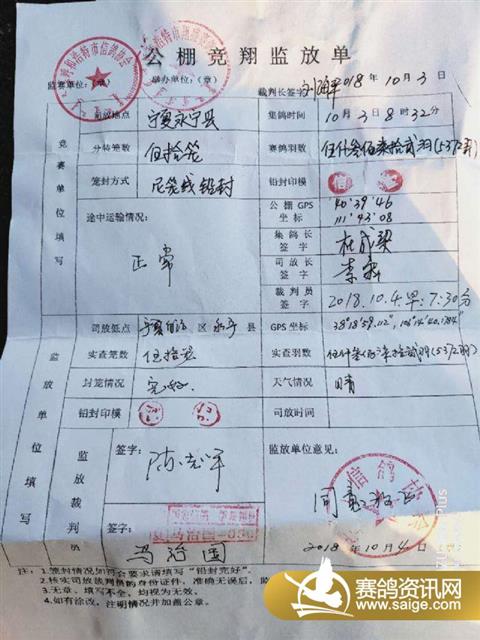 公棚竞翔监放单
监赛单位:(章) 举办单位:(章) 裁判长签字
2018年10月3日
竞赛单位填写
司放地点 宁夏永宁县 集鸽时间 10月3日8时32分
分装笼数 伍拾笼 赛鸽羽数 伍仟叁佰柒拾贰羽(5372羽)
笼封方式 尼笼线铅封 铅封印模
途中运输情况: 正常
公棚GPS坐标 40°39′46 111°43′08
集鸽长签字 杜成梁
司放长签字
裁判员签字 2018.10.4.早7:30分
监放单位填写
司放低点 区 永宁 县 GPS坐标 38°18′59.112″,106°14′40.1784″
实查笼数 伍拾笼 实查羽数 伍仟叁佰柒拾贰羽(5372羽)
封笼情况 完好 天气情况 晴
铅封印模 司放时间
监放裁判员
签字: 监放单位意见:
签字: 马治国
2018年10月4日
注:1.笼封情况如符合要求请填写“铅封完好”。
2.核实司放裁判员的身份证件,准确无误后,
3.无章、填写不全、均视为无效。
4.如有涂改,注明情况并加盖公章。
赛鸽资讯网
www.saige.com